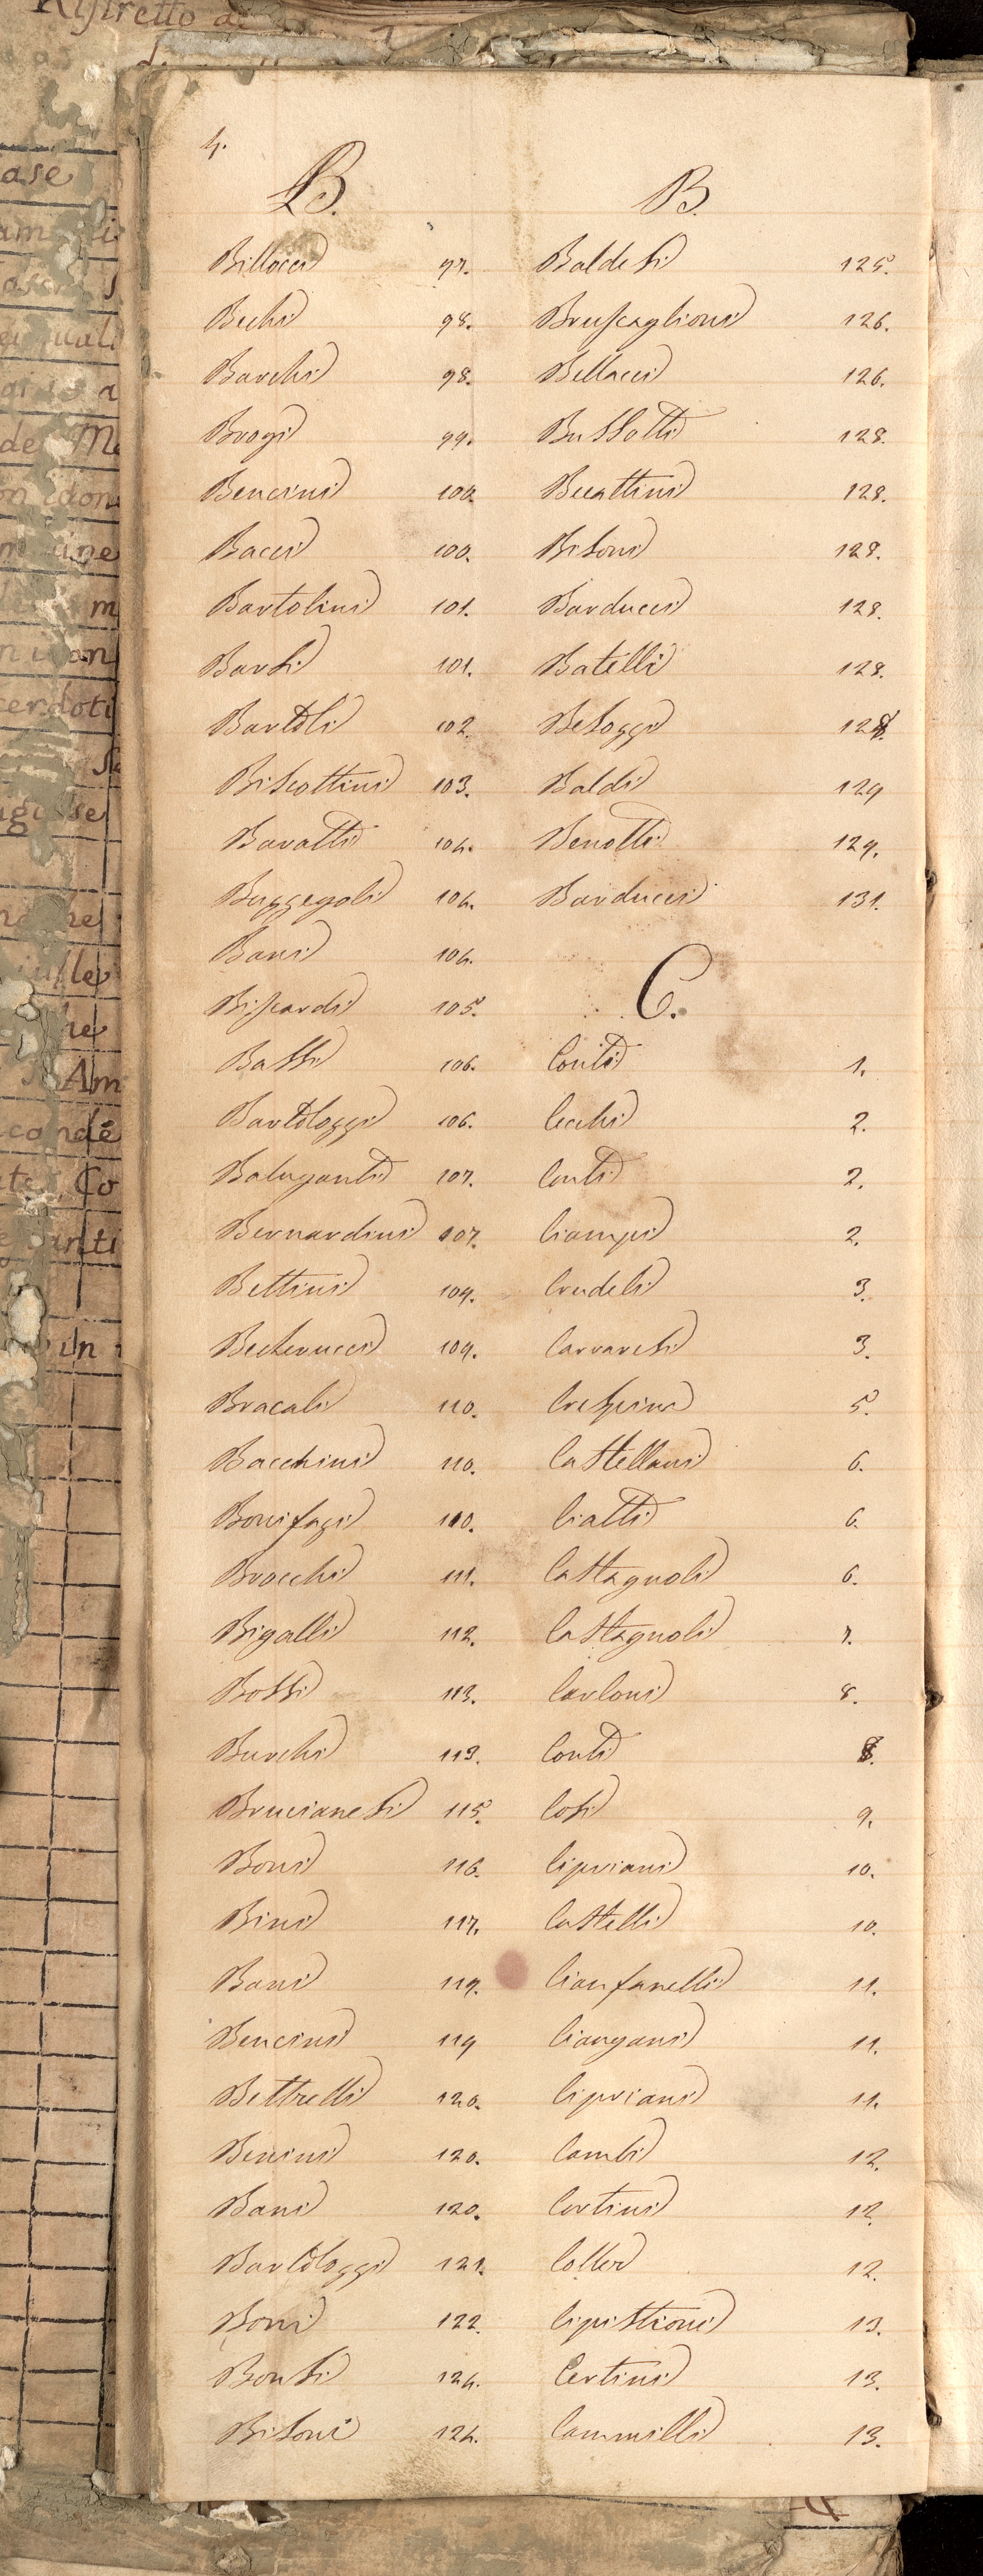 4.
B.
Billocci 97.
Bechi 98.
Barchi 98.
Brogi 99.
Bencini 100.
Bacci 100.
Bartolini 101.
Barsi 101.
Bartoli 102.
Biscottini 103.
Baratti 104.
Bazzegoli 104.
Bani 104.
Biscardi 105.
Bassi 106.
Bartolozzi 106.
Baluganti 107.
Bernardini 107.
Bettini 109.
Becherucci 109.
Bracali 110.
Bacchini 110.
Bonifazi 110.
Brocchi 111.
Bigalli 112.
Bossi 113.
Burchi 113.
Brucianesi 115.
Boni 116.
Bini 117.
Bani 119.
Bencini 119
Bettrelli 120.
Benini 120.
Bani 120.
Bartolozzi 121.
Boni 122.
Bonsi 124.
Bisoni 124.
B.
Baldesi 125.
Bruscaglioni 126.
Bellacci 126.
Bussotti 128.
Becattini 128.
Bisoni 128.
Barducci 128.
Batelli 128.
Besoggi 128.
Baldi 129
Benotti 129.
Barducci 131.
C.
Conti 1.
Cecchi 2.
Conti 2.
Ciampi 2.
Crudeli 3.
Carraresi 3.
Crespina 5.
Castellani 6.
Ciatti 6.
Castagnoli 6.
Castagnoli 7.
Carloni 8.
Conti 8.
Cosi 9.
Cipriani 10.
Castelli 10.
Cianfanelli 11.
Ciangani 11.
Cipriani 11.
Cambi 12.
Cortini 12.
Coller 12.
Cipistioni 13.
Certini 13.
Cammilli 13.